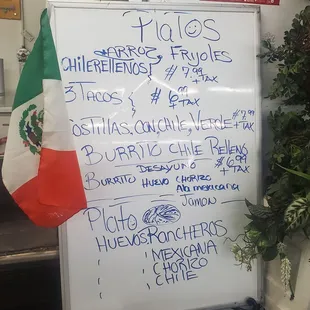 Platos
ARROZ, FRYJOLES
CHILERELLENOS} $7.99
+TAX
3 TACOS { $6.99
+TAX
OSTILLAS, CON, CHILE, VERDE $7.99
+TAX
BURRITO CHILE RELLENO
DESAYUNO $6.99
+TAX
BURRITO HUEVO CHORIZO
Ala mexicana
Jamon
Plato
HUEVOS RANCHEROS
" MEXICANA
" CHORIZO
" CHILE